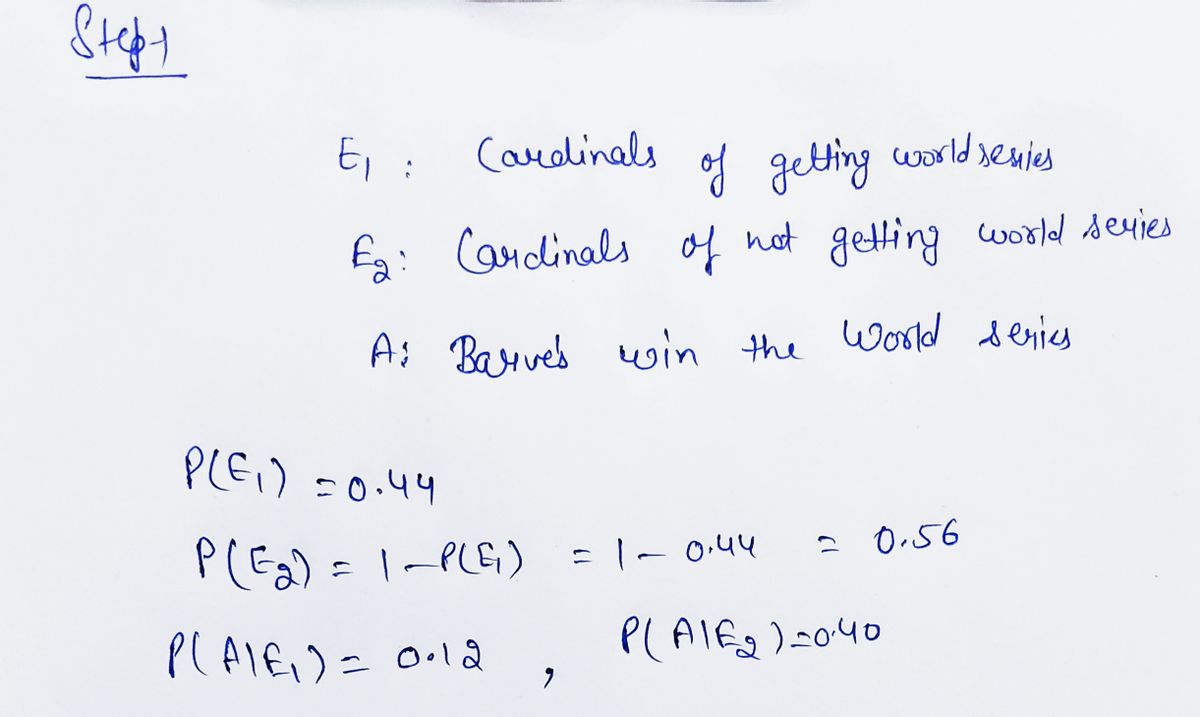 Step 1
E₁ : Cardinals of getting world series
E₂: Cardinals of not getting world series
A: Barve's win the World series
P(E₁) = 0.44
P(E₂) = 1 - P(E₁) = 1 - 0.44 = 0.56
P(A|E₁) = 0.12 , P(A|E₂) = 0.40